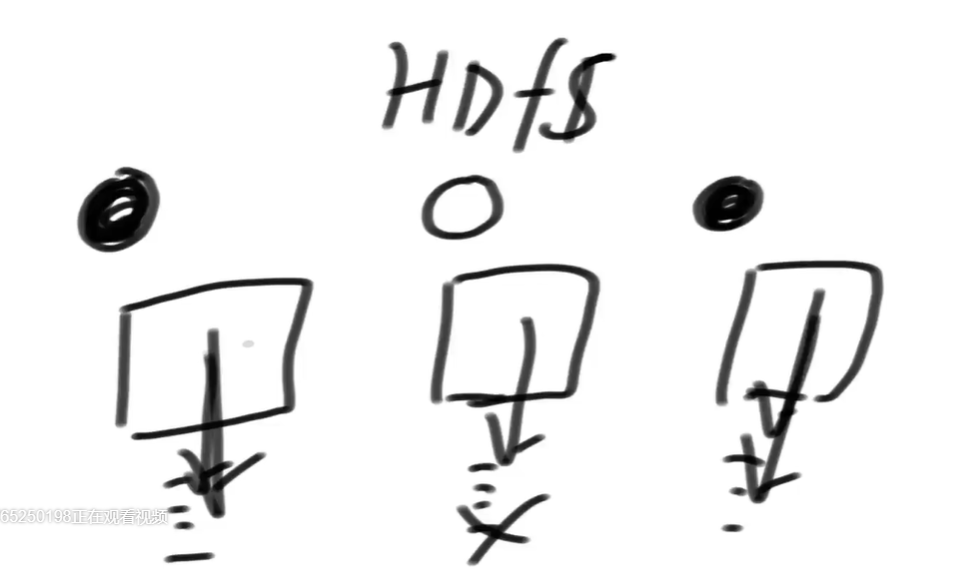 HDfS
65250198正在观看视频